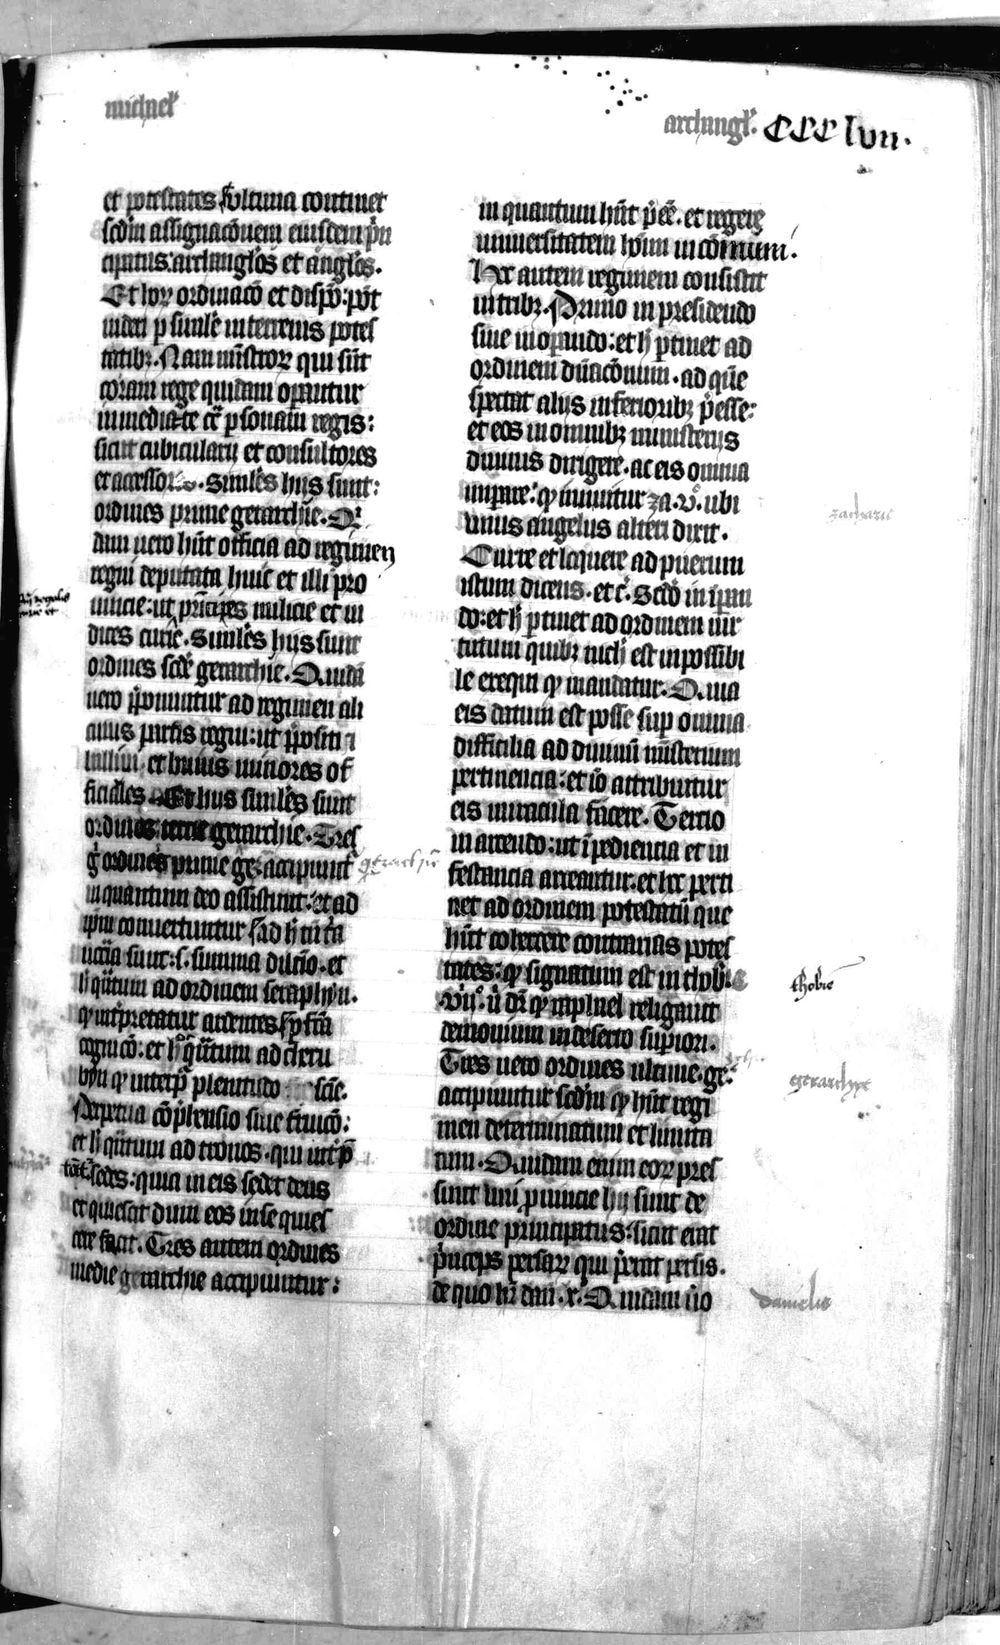 michael'
archangl'. CCClvii.
et potestates Vltima continet
scd'm assignac̄onem eiusdem p'n
cipatus: archangl'os et angl'os.
Et hoꝝ ordinac̄o et disp̄o: pōt
uideri p simile in terrenis potes
tatibꝫ. Nam ministroꝝ qui sūt
coram rege quidam oꝑantur
inmediate cir̄ ꝑsonam regis:
sicut cubicularij et consultores
et assessores. Similes hijs sunt:
ordines prime gerarchie. Q'
dam uero hn̄t officia ad regimen
regni deputata huic et illi pro
uincie: ut principes milicie et iu
dices curie. Similes hijs sunt
ordines scd'e gerarchie. Quidā
uero p̄ponuntur ad regimen ali
cuius partis regni: ut p̄positi
et huius minores of
ficiales. Et hijs similes sunt
ordines tercie gerarchie. Tres
g° ordines prime ger accipiunt'
gerarchie
inquantum deo assistunt: et ad
ip̄m conuertuntur ad h̄ tūc
n̄cc̄ia sunt: s. summa dilc̄io. et
h̄ q̄ntum ad ordinem seraphyn.
q̄ int'pretatur ardentes p̄fc̄a
cognic̄o: et h° q̄ntum ad cheru
byn q̄ interp̄ plenitudo scīe.
Perpetua cōp̄hensio siue fruic̄o:
et h̄ q̄ntum ad tronos. qui int'p̄
tāt' sedes: quia in eis sedet deus
et quiescit dum eos in se quies
cere facit. Tres autem ordines
medie gerarchie accipiuntur:
in quantum hn̄t p̄ēē. et regere
uniuersitatem hoīm in cōmuni.
Hec autem regimen consistit
in tribꝫ. Primo in presidendo
siue inoꝑando: et h̄ ꝑtinet ad
ordinem dn̄ac̄onum. ad quē
spectat alijs inferioribꝫ p̄esse:
et eos in omnibꝫ ministerijs
diuinis dirigere. ac eis omnia
impare: q̄ innuitur za. v°. ubi
zacharie
unus angelus alteri dixit.
Curre et loquere ad puerum
istum dicens. et c'. Scd'o in ip̄an
do: et h̄ ꝑtinet ad ordinem uir
tutum quibꝫ nich̄ est inpossibi
le exequi q̄ mandatur. Quia
eis datum est posse sup omnia
difficilia ad diuinū ministerium
pertinencia: et iō attribuitur
eis miracula facere. Tercio
in arcendo: ut īpedientia et in
festancia arceantur. et hec perti
net ad ordinem potestatū que
hn̄t cohercere contrarias potes
tates: q̄ signatum est in thob.
thobie
viii°. ū dr̄ q̄ raphael religauit
demonium in deserto supiori.
Tres uero ordines ultime ger.
gerarchye
accipiuntur scd'm q̄ hn̄t regi
men determinatum et limita
tum. Quidam enim eoꝝ pres
sunt uni ꝓuincie hij sunt de
ordine principatus: sicut erat
p̄nceps persaꝝ qui p̄erat persis.
de quo hr̄ dan. x. Quidam ūo
danielis